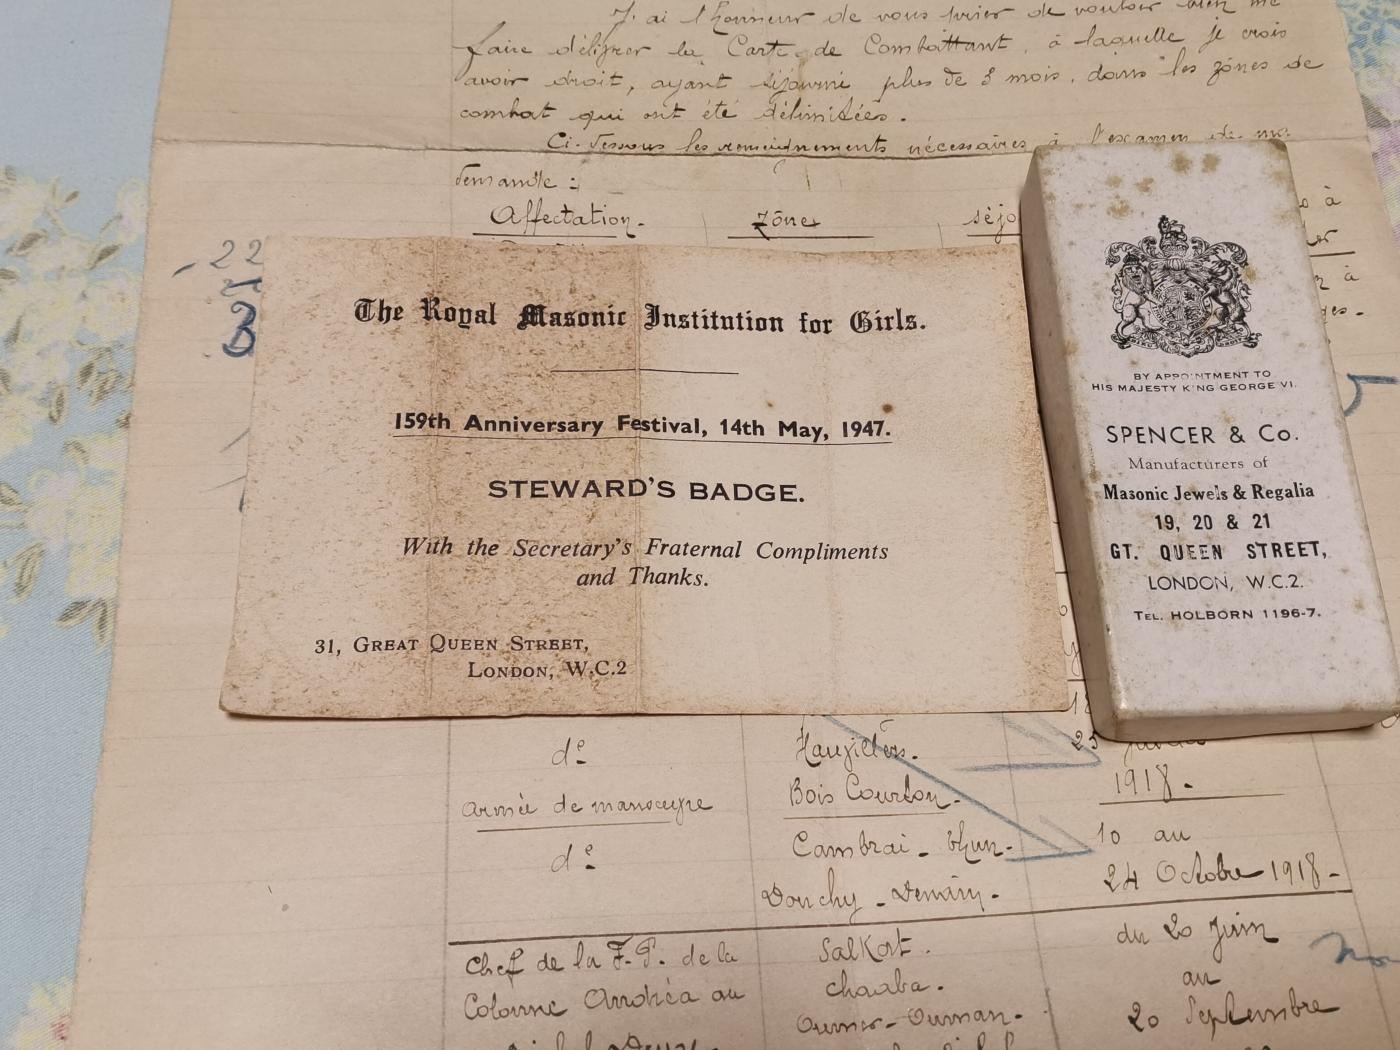 J'ai l'honneur de vous prier de vouloir bien me
faire délivrer la Carte de Combattant, à laquelle je crois
avoir droit, ayant séjourné plus de 3 mois, dans les zônes de
combat qui ont été délimitées.
Ci-dessous les renseignements nécessaires à l'examen de ma
demande :
Affectation. zône séjo
22
3
The Royal Masonic Institution for Girls.
159th Anniversary Festival, 14th May, 1947.
STEWARD'S BADGE.
With the Secretary's Fraternal Compliments
and Thanks.
31, GREAT QUEEN STREET,
LONDON, W.C.2
BY APPOINTMENT TO
HIS MAJESTY KING GEORGE VI.
SPENCER & Co.
Manufacturers of
Masonic Jewels & Regalia
19, 20 & 21
GT. QUEEN STREET,
LONDON, W.C.2.
TEL. HOLBORN 1196-7.
dº 25
armée de manoeuvre Bois Courton. 1918.
dº Cambrai - 10 au
Douchy - Denain. 24 Octobre 1918 -
Chef de la F.P. de la Salkat. du 20 Juin
Colonne Andréa au chaaba. au
Oumar-Ouman. 20 Septembre